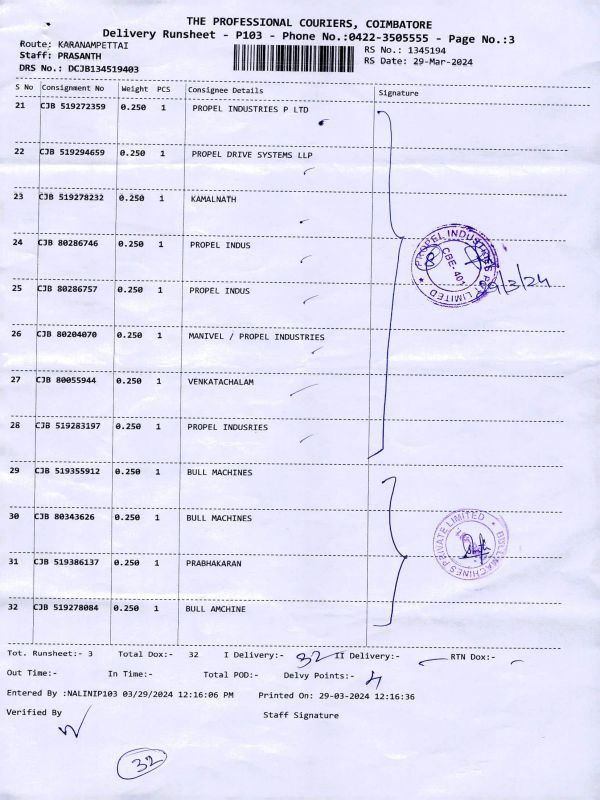 THE PROFESSIONAL COURIERS, COIMBATORE
Delivery Runsheet - P103 - Phone No.:0422-3505555 - Page No.:3
Route: KARANAMPETTAI RS No.: 1345194
Staff: PRASANTH RS Date: 29-Mar-2024
DRS No.: DCJB134519403
S No Consignment No Weight PCS Consignee Details Signature
21 CJB 519272359 0.250 1 PROPEL INDUSTRIES P LTD
22 CJB 519294659 0.250 1 PROPEL DRIVE SYSTEMS LLP
23 CJB 519278232 0.250 1 KAMALNATH
24 CJB 80286746 0.250 1 PROPEL INDUS
25 CJB 80286757 0.250 1 PROPEL INDUS
26 CJB 80204070 0.250 1 MANIVEL / PROPEL INDUSTRIES
27 CJB 80055944 0.250 1 VENKATACHALAM
28 CJB 519283197 0.250 1 PROPEL INDUSRIES
PROPEL INDUSTRIES LIMITED
CBE-49
29 CJB 519355912 0.250 1 BULL MACHINES
30 CJB 80343626 0.250 1 BULL MACHINES
31 CJB 519386137 0.250 1 PRABHAKARAN
32 CJB 519278084 0.250 1 BULL AMCHINE
BULL MACHINES PRIVATE LIMITED
Tot. Runsheet:- 3 Total Dox:- 32 I Delivery:- 32 II Delivery:- RTN Dox:-
Out Time:- In Time:- Total POD:- Delvy Points:- 4
Entered By :NALINIP103 03/29/2024 12:16:06 PM Printed On: 29-03-2024 12:16:36
Verified By Staff Signature
32